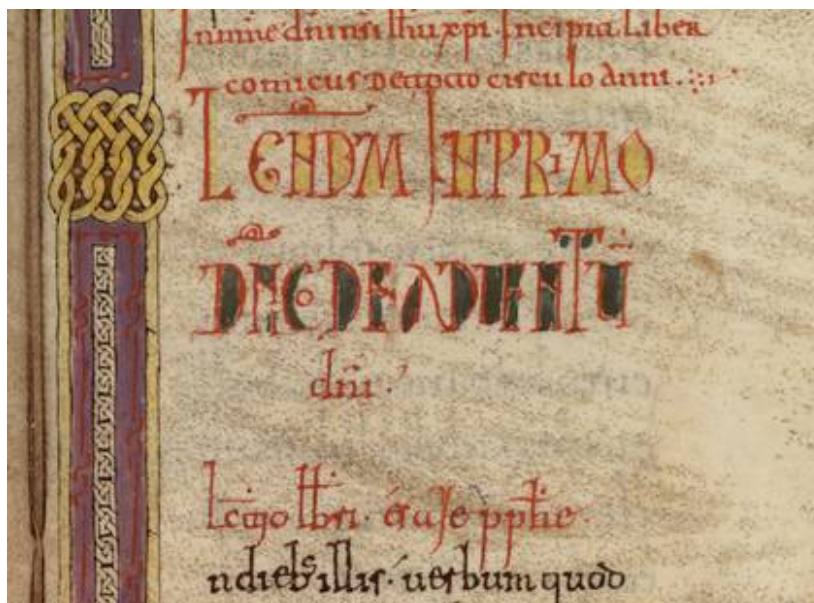 In nme dni nsi ihu xpi. Incipit Liber
comicus de toto circulo anni
LEGNDM IN PRIMO
DNCO DE ADUENTU
dni
Lctio lbri
n diebs illis. uerbum quod